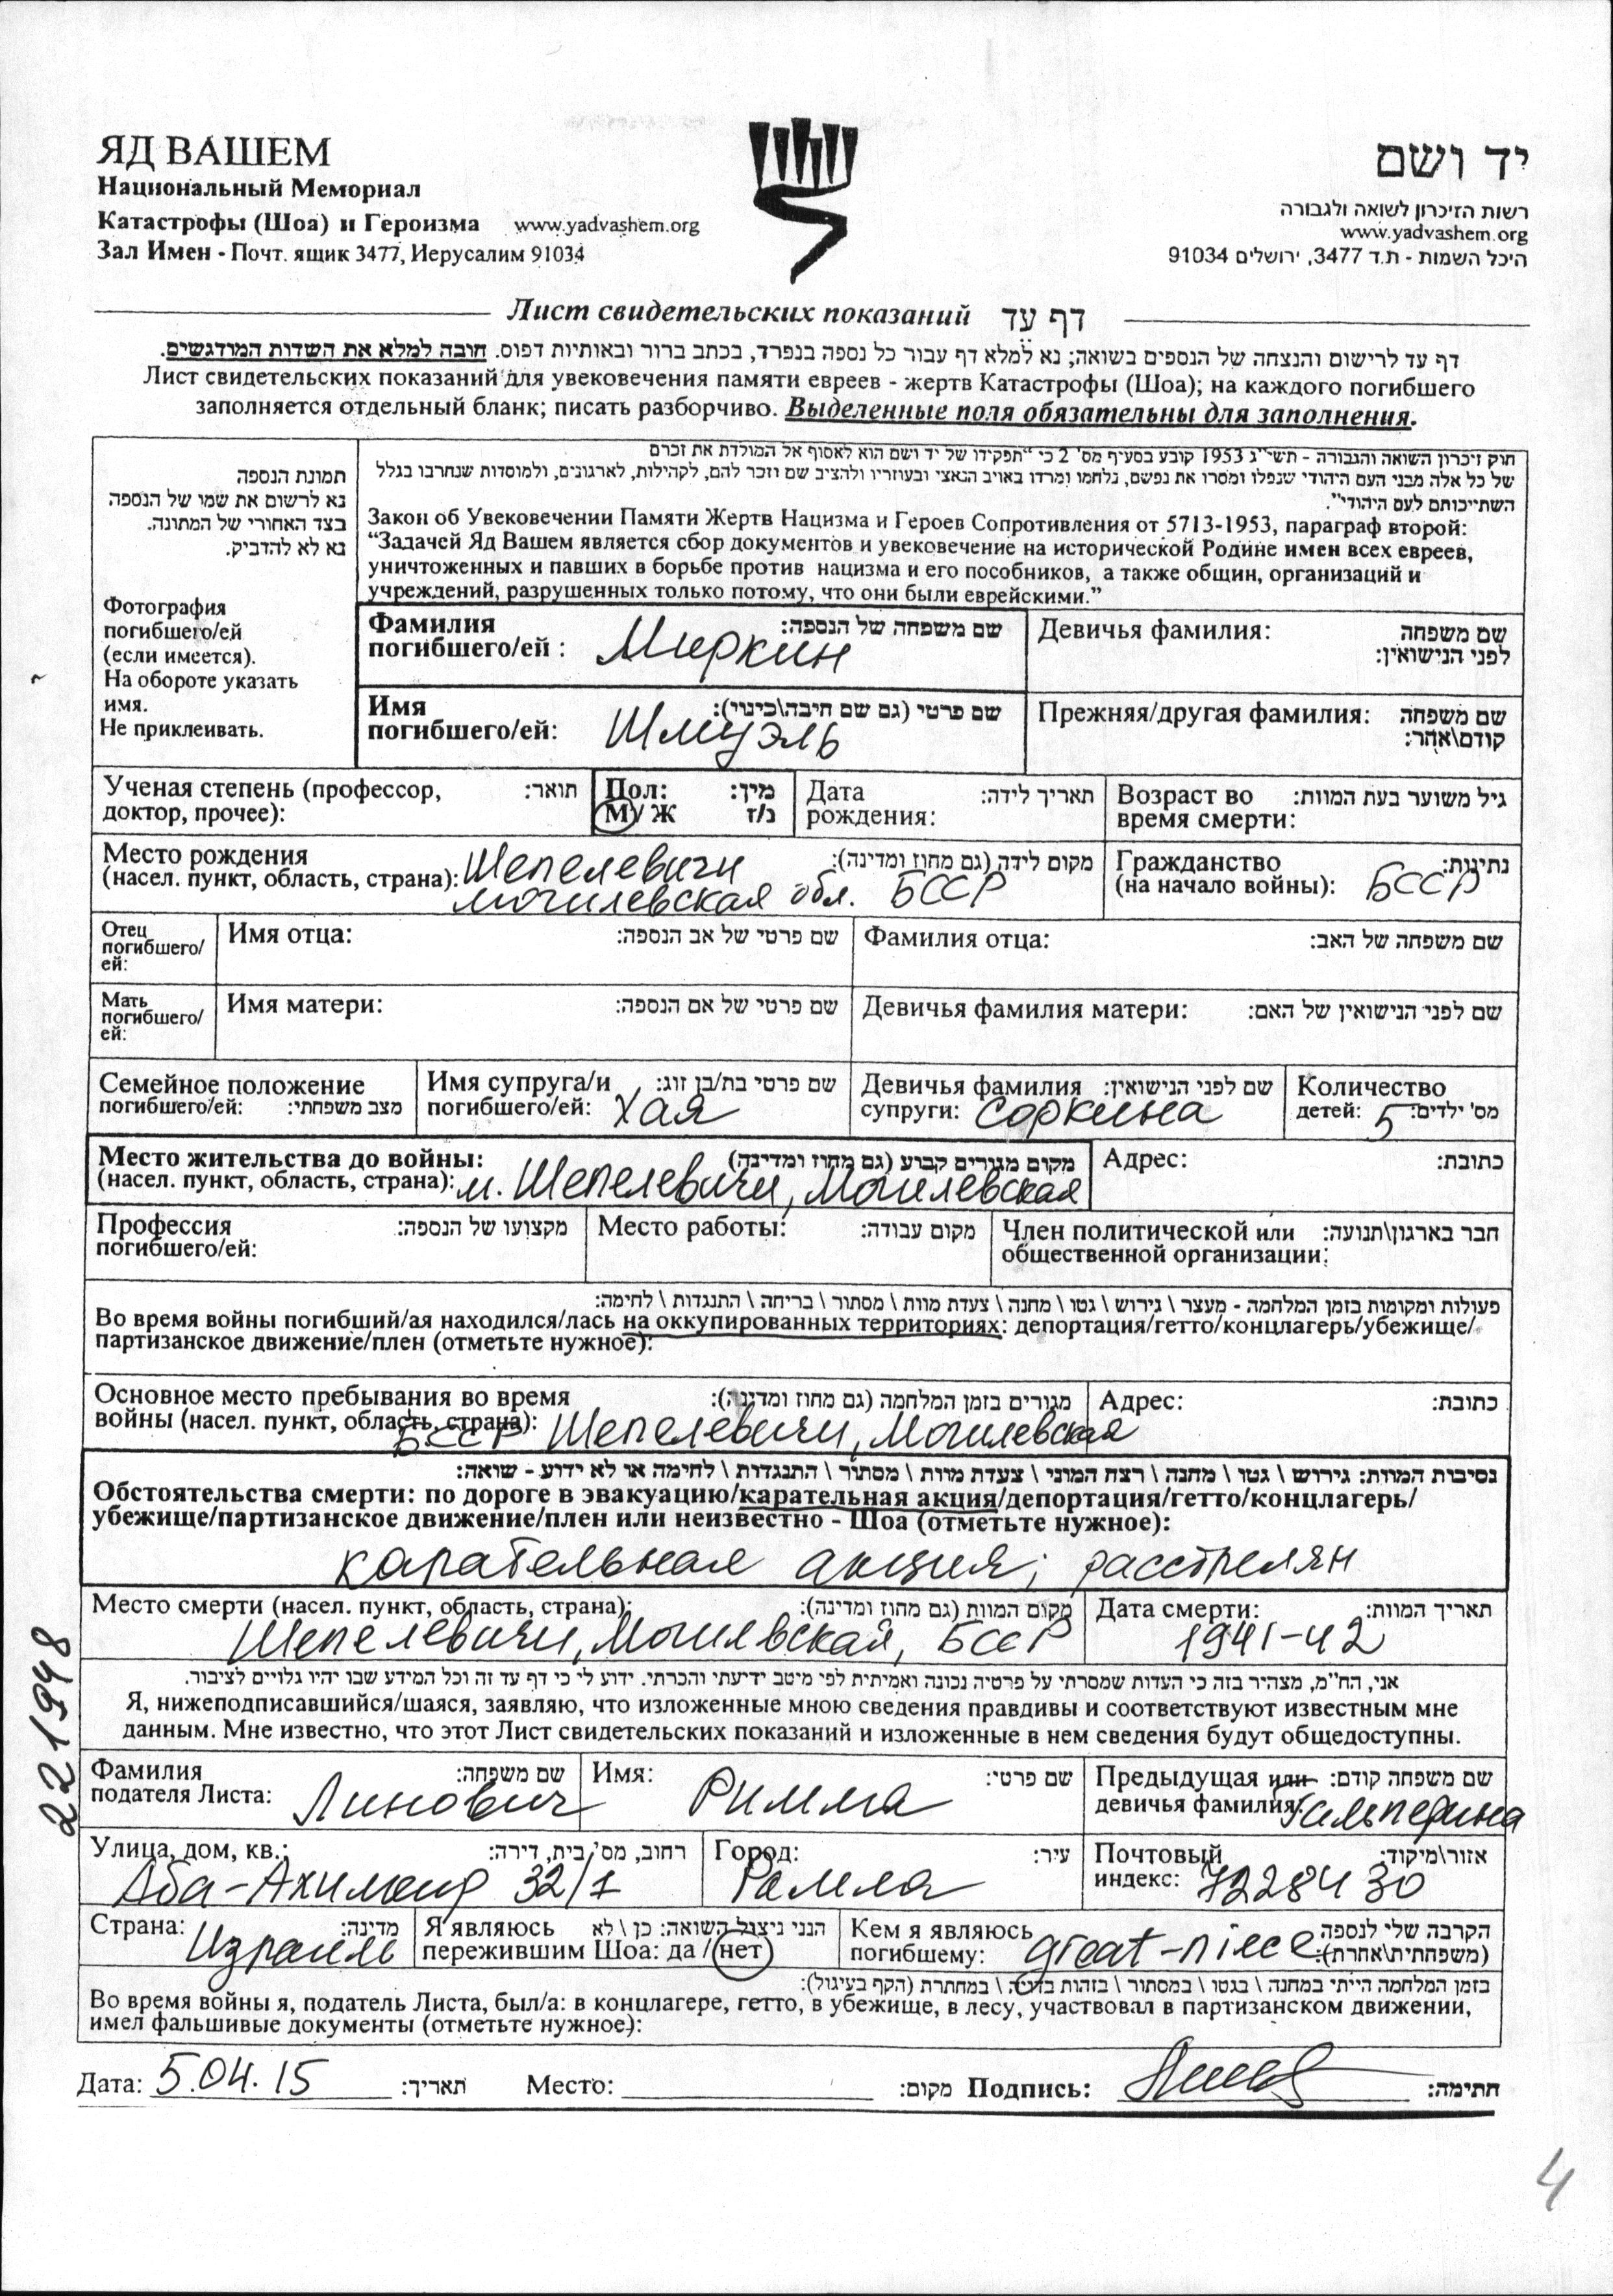 ЯД ВАШЕМ
Национальный Мемориал
Катастрофы (Шоа) и Героизма www.yadvashem.org
Зал Имен - Почт. ящик 3477, Иерусалим 91034
יד ושם
רשות הזיכרון לשואה ולגבורה
www.yadvashem.org
היכל השמות - ת.ד 3477, ירושלים 91034
Лист свидетельских показаний דף עד
דף עד לרישום והנצחה של הנספים בשואה; נא למלא דף עבור כל נספה בנפרד, בכתב ברור ובאותיות דפוס. חובה למלא את השדות המודגשים.
Лист свидетельских показаний для увековечения памяти евреев - жертв Катастрофы (Шоа); на каждого погибшего
заполняется отдельный бланк; писать разборчиво. Выделенные поля обязательны для заполнения.
תמונת הנספה
נא לרשום את שמו של הנספה
בצד האחורי של התמונה.
נא לא להדביק.
Фотография
погибшего/ей
(если имеется).
На обороте указать
имя.
Не приклеивать.
חוק זיכרון השואה והגבורה - תשי"ג 1953 קובע בסעיף מס' 2 כי "תפקידו של יד ושם הוא לאסוף אל המולדת את זכרם
של כל אלה מבני העם היהודי שנפלו ומסרו את נפשם, נלחמו ומרדו באויב הנאצי ובעוזריו ולהציב שם וזכר להם, לקהילות, לארגונים, ולמוסדות שנחרבו בגלל
השתייכותם לעם היהודי".
Закон об Увековечении Памяти Жертв Нацизма и Героев Сопротивления от 5713-1953, параграф второй:
“Задачей Яд Вашем является сбор документов и увековечение на исторической Родине имен всех евреев,
уничтоженных и павших в борьбе против нацизма и его пособников, а также общин, организаций и
учреждений, разрушенных только потому, что они были еврейскими.”
Фамилия שם משפחה של הנספה:
погибшего/ей : Миркин
Девичья фамилия: שם משפחה
לפני הנישואין:
Имя שם פרטי (גם שם חיבה\כינוי):
погибшего/ей: Шмуэль
Прежняя/другая фамилия: שם משפחה
קודם\אחר:
Ученая степень (профессор, תואר:
доктор, прочее):
Пол: מין:
М/ Ж ז/נ
Дата תאריך לידה:
рождения:
Возраст во גיל משוער בעת המוות:
время смерти:
Место рождения מקום לידה (גם מחוז ומדינה):
(насел. пункт, область, страна): Шепелевичи
могилевская обл. БССР
Гражданство נתינות:
(на начало войны): БССР
Отец
погибшего/
ей:
Имя отца: שם פרטי של אב הנספה:
Фамилия отца: שם משפחה של האב:
Мать
погибшего/
ей:
Имя матери: שם פרטי של אם הנספה:
Девичья фамилия матери: שם לפני הנישואין של האם:
Семейное положение
погибшего/ей: מצב משפחתי:
Имя супруга/и שם פרטי בת/בן זוג:
погибшего/ей: Хая
Девичья фамилия שם לפני הנישואין:
супруги: Соркина
Количество
детей: 5 מס' ילדים:
Место жительства до войны: מקום מגורים קבוע (גם מחוז ומדינה)
(насел. пункт, область, страна): м. Шепелевичи, Могилевская
Адрес: כתובת:
Профессия מקצועו של הנספה:
погибшего/ей:
Место работы: מקום עבודה:
Член политической или חבר בארגון\תנועה:
общественной организации:
פעולות ומקומות בזמן המלחמה - מעצר \ גירוש \ גטו \ מחנה \ צעדת מוות \ מסתור \ בריחה \ התנגדות \ לחימה:
Во время войны погибший/ая находился/лась на оккупированных территориях: депортация/гетто/концлагерь/убежище/
партизанское движение/плен (отметьте нужное):
Основное место пребывания во время מגורים בזמן המלחמה (גם מחוז ומדינה):
войны (насел. пункт, область, страна):
БССР Шепелевичи, Могилевская
Адрес: כתובת:
נסיבות המוות: גירוש \ גטו \ מחנה \ רצח המוני \ צעדת מוות \ מסתור \ התנגדות \ לחימה או לא ידוע - שואה:
Обстоятельства смерти: по дороге в эвакуацию/карательная акция/депортация/гетто/концлагерь/
убежище/партизанское движение/плен или неизвестно - Шоа (отметьте нужное):
карательная акция; расстрелян
Место смерти (насел. пункт, область, страна): מקום המוות (גם מחוז ומדינה):
Шепелевичи, Могилвская, БССР
Дата смерти: תאריך המוות:
1941-42
אני, הח"מ, מצהיר בזה כי העדות שמסרתי על פרטיה נכונה ואמיתית לפי מיטב ידיעתי והכרתי. ידוע לי כי דף עד זה וכל המידע שבו יהיו גלויים לציבור.
Я, нижеподписавшийся/шаяся, заявляю, что изложенные мною сведения правдивы и соответствуют известным мне
данным. Мне известно, что этот Лист свидетельских показаний и изложенные в нем сведения будут общедоступны.
Фамилия שם משפחה:
подателя Листа: Линович
Имя: שם פרטי:
Римма
Предыдущая или שם משפחה קודם:
девичья фамилия: Гальперина
Улица, дом, кв.: רחוב, מס' בית, דירה:
Аба-Ахимеир 32/1
Город: עיר:
Рамла
Почтовый אזור\מיקוד:
индекс: 7228430
Страна: מדינה:
Израиль
Я являюсь הנני ניצול השואה: כן \ לא
пережившим Шоа: да / нет
Кем я являюсь הקרבה שלי לנספה
погибшему: great-niece (משפחתית\אחרת):
בזמן המלחמה הייתי במחנה \ בגטו \ במסתור \ בזהות בדויה \ במחתרת (הקף בעיגול):
Во время войны я, податель Листа, был/а: в концлагере, гетто, в убежище, в лесу, участвовал в партизанском движении,
имел фальшивые документы (отметьте нужное):
Дата: 5.04.15 תאריך: Место: מקום: Подпись: חתימה:
221948
4